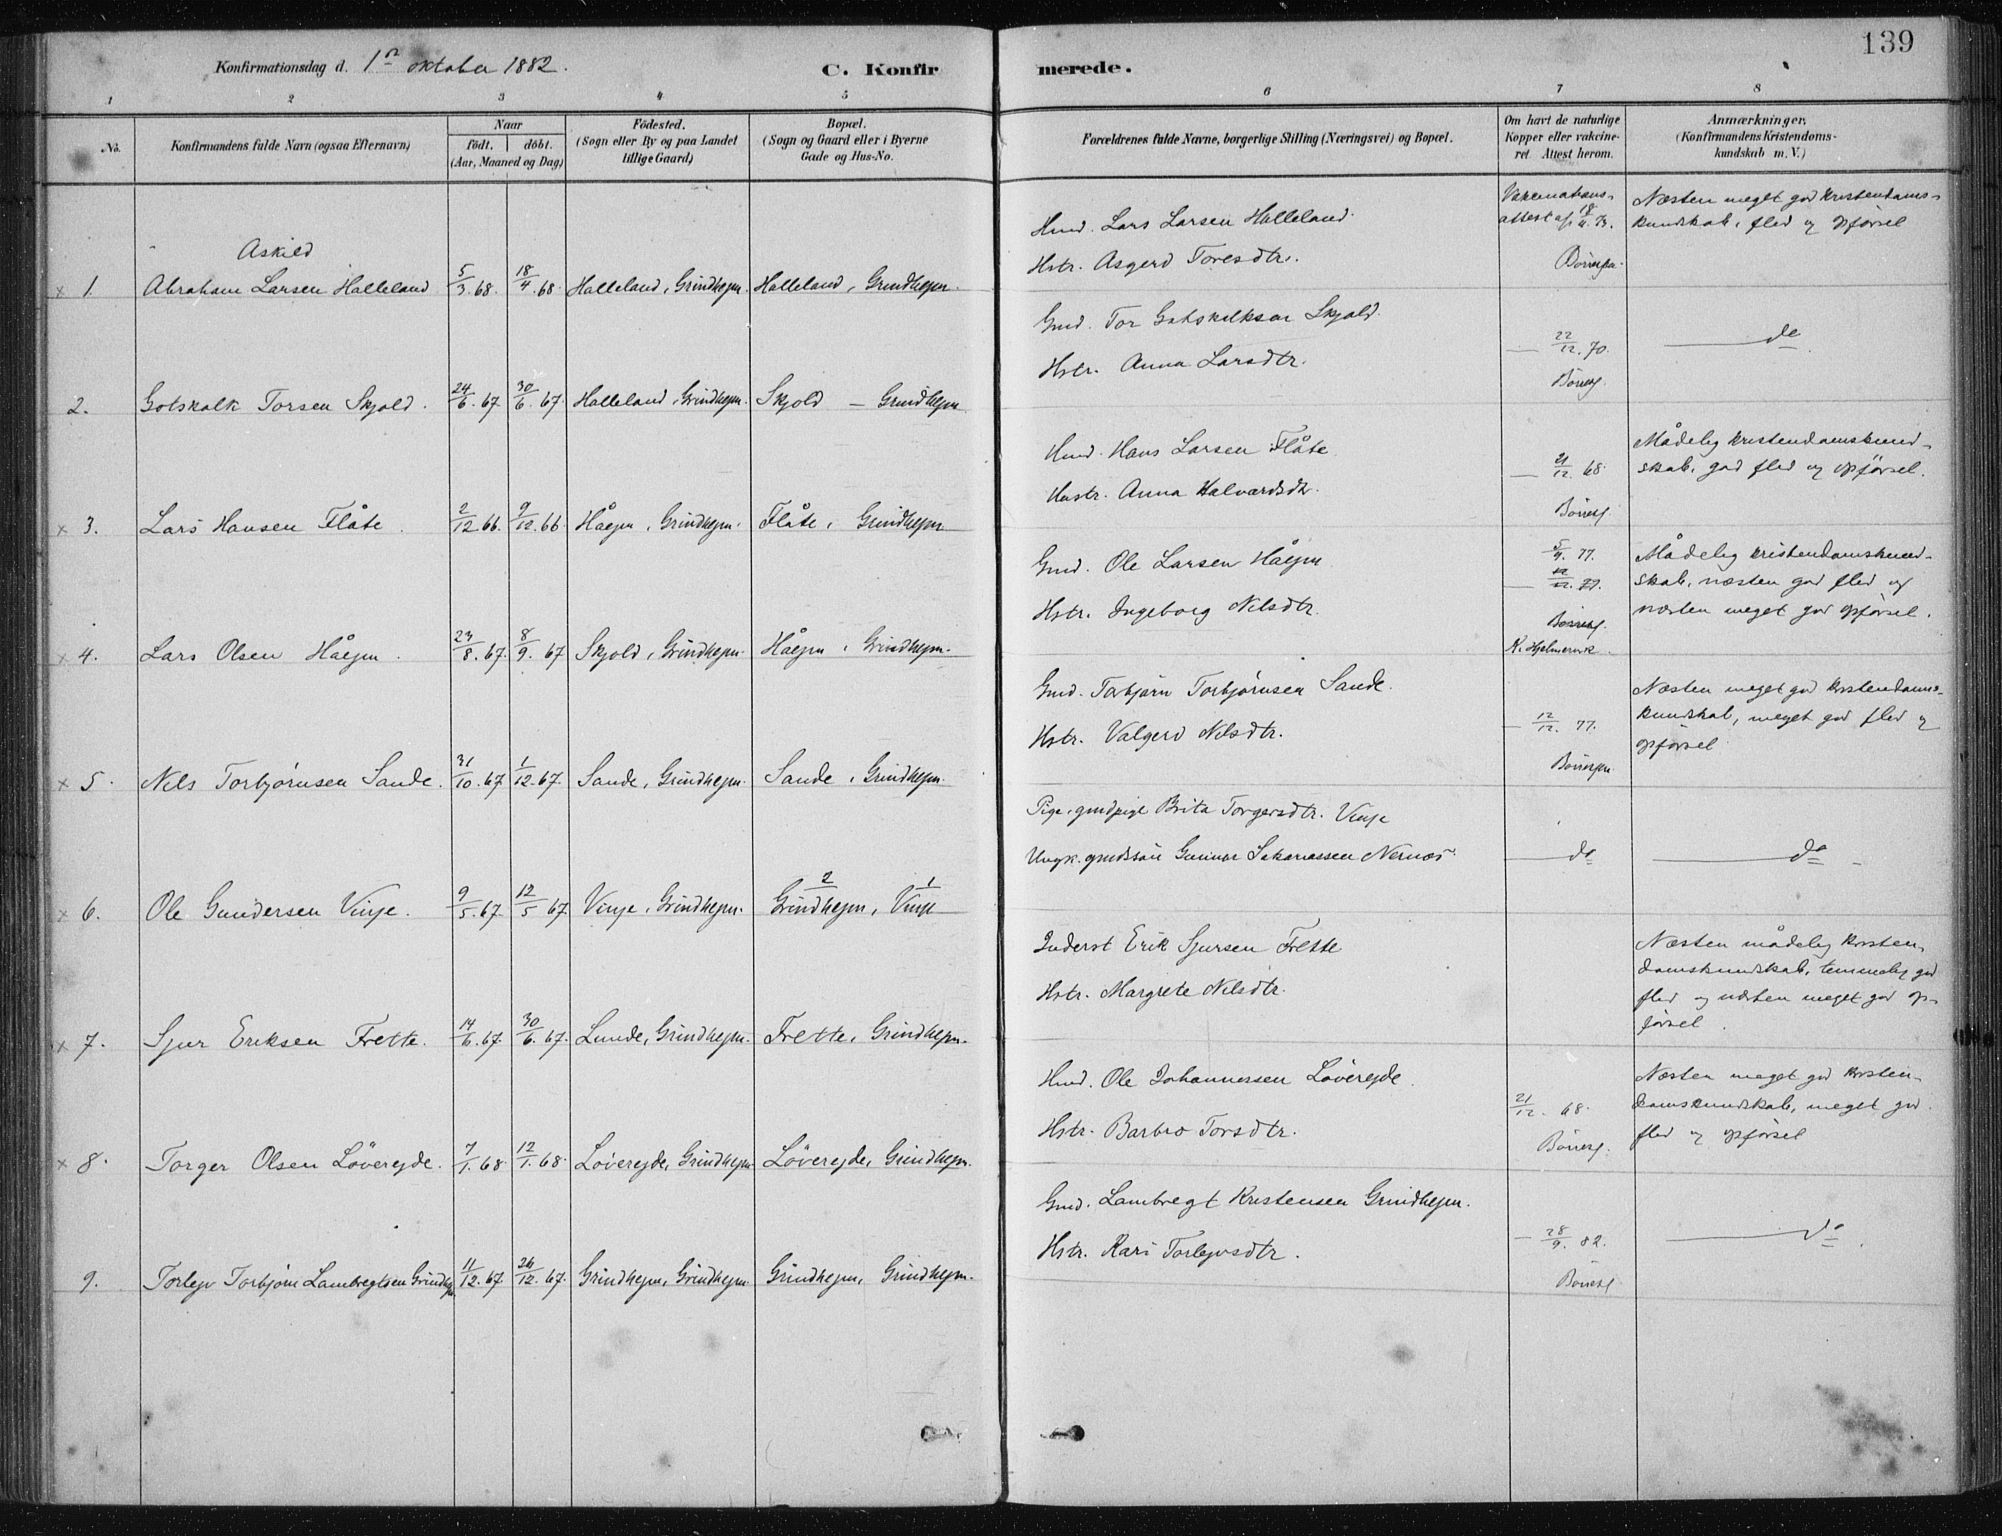 139
Konfirmationsdag d. 1ste oktober 1882.
C. Konfirmerede.
1 2 3 4 5 6 7 8
No. Konfirmandens fulde Navn (ogsaa Efternavn) Naar födt. döbt. (Aar, Maaned og Dag) Födested. (Sogn eller By og paa Landet tillige Gaard) Bopæl. (Sogn og Gaard eller i Byerne Gade og Hus-No. Forældrenes fulde Navne, borgerlige Stilling (Næringsvei) og Bopæl. Om havt de naturlige Kopper eller vakcineret Attest herom. Anmærkninger, (Konfirmandens Kristendomskundskab m. V.)
Askild
× 1. Abraham Larsen Halleland 5/3.68. 18/4.68. Halleland, Grindhejm. Halleland, Grindhejm.
Hmd. Lars Larsen Halleland
Hstr. Asgerd Toresdtr.
Vakcinations-
attest af
Næsten meget god kristendoms-
kundskab, flid og opførsel
2. Gotskalk Torsen Skjold. 24/6.67. 30/6.67. Halleland, Grindhejm. Skjold – Grindhejm
Gmd. Tor Gotskalksen Skjold.
Hstr. Anna Larsdtr.
— 22/12.70.
do
× 3. Lars Hansen Flåte. 2/12.66. 9/12.66. Håejm, Grindhejm. Flåte, Grindhejm
Hmd. Hans Larsen Flåte
Hustr. Anna Halvardsdtr.
— 21/12.68.
Mådelig kristendomskund-
skab, god flid og opførsel.
× 4. Lars Olsen Håejm. 23/8.67. 8/9.67 Skjold, Grindhejm. Håejm, Grindhejm.
Gmd. Ole Larsen Håejm
Hstr. Ingeborg Nilsdtr.
5/9.77.
K. Hjelmervik.
Mådelig kristendomskund-
skab, næsten god flid og
næsten meget god opførsel.
× 5. Nils Torbjørnsen Sande. 31/10.67 1/12.67. Sande, Grindhejm. Sande, Grindhejm.
Gmd. Torbjørn Torbjørnsen Sande.
Hstr. Valgerd Nilsdtr.
— 12/12.77.
Næsten meget god kristendoms-
kundskab, meget god flid og
opførsel
× 6. Ole Gundersen Vinje. 9/5.67. 12/5.67. Vinje, Grindhejm. Grindhejm, 2 Vinje 1
Pige, gmdpige Brita Torgersdtr. Vinje
Ungk. gmdssön Gunnar Sakariassen Nernæs.
— do
— do —
× 7. Sjur Eriksen Frette. 14/6.67. 30/6.67. Lunde, Grindhejm. Frette, Grindhejm.
Inderst Erik Sjursen Frette
Hstr. Margrete Nilsdtr.
Næsten mådelig kristen-
domskundskab, temmelig god
flid og næsten meget god op-
førsel.
× 8. Torger Olsen Löverejde. 7/1.68. 12/1.68. Löverejde, Grindhejm Löverejde, Grindhejm.
Hmd. Ole Johannessen Löverejde.
Hstr. Barbro Torsdtr.
21/12. 68.
Næsten meget god kristen-
domskundskab, meget god
flid og opførsel
9. Torlejv Torbjörn Lambregtsen Grindhejm. 11/12.67 26/12.67. Grindhejm, Grindhejm. Grindhejm, Grindhejm.
Gmd. Lambregt Kristensen Grindhejm.
Hstr. Kari Torlejvsdtr.
— 28/9.82.
do